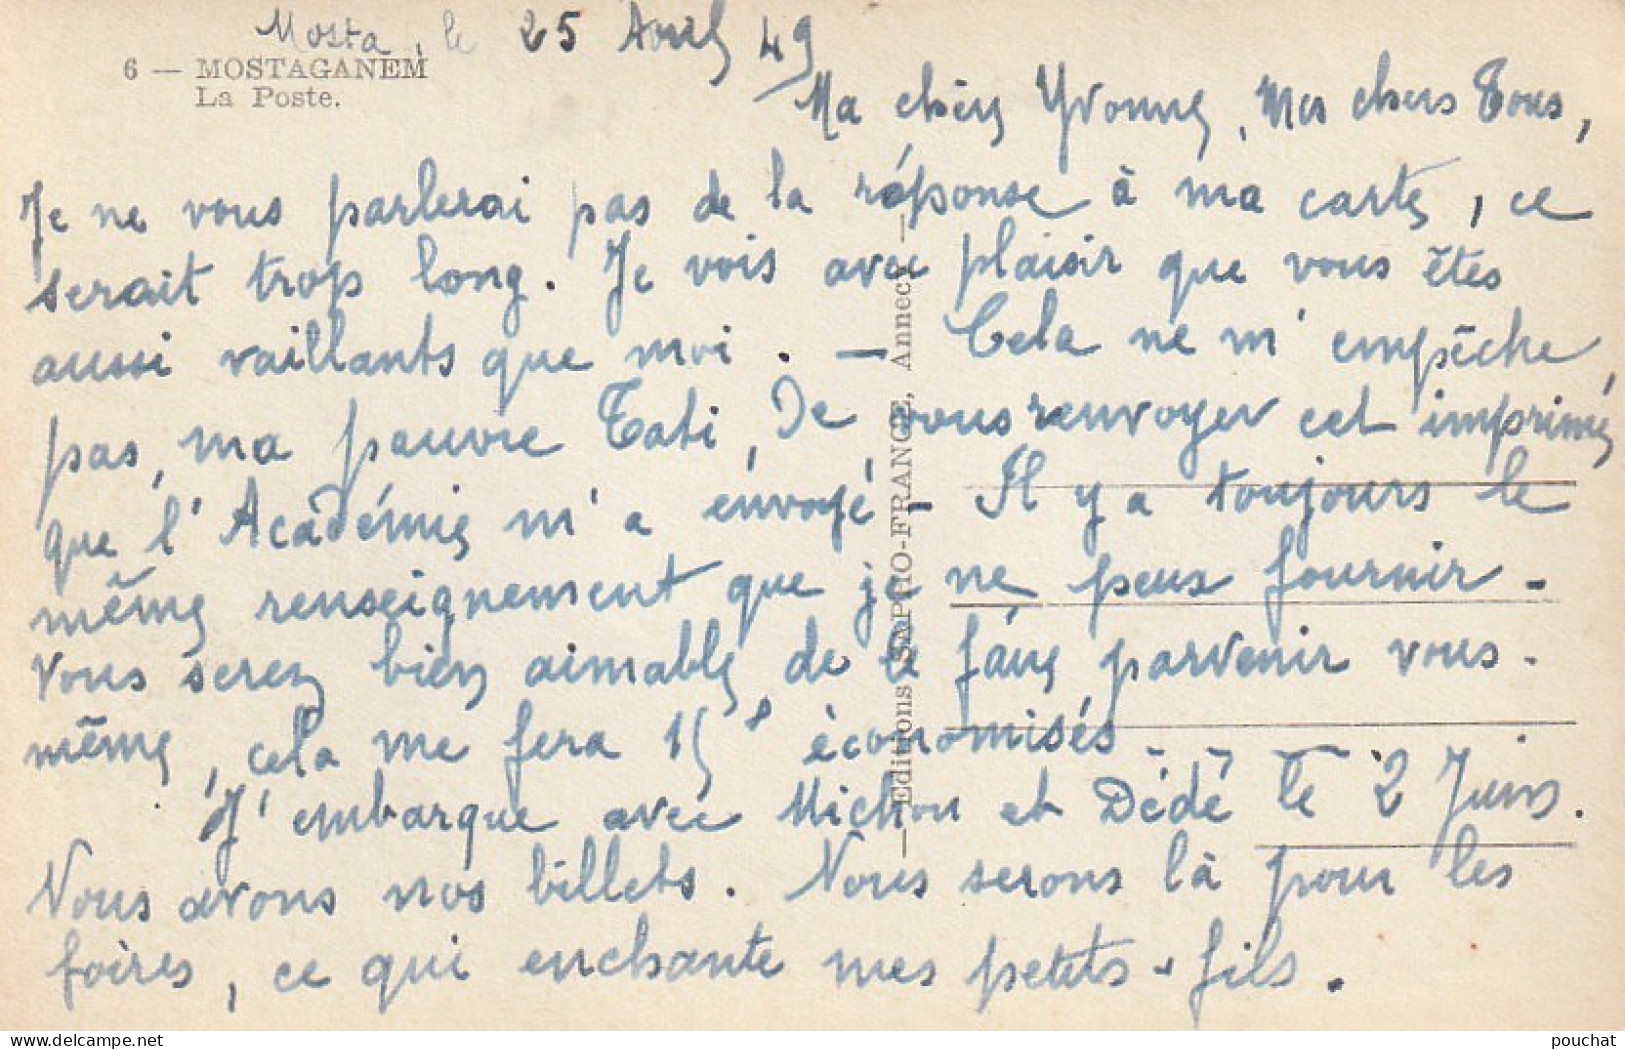 Mosta, le 25 Avril 49
6 — MOSTAGANEM
La Poste.
Ma chère Yvonne, Mes chers Tous,
Je ne vous parlerai pas de la réponse à ma carte, ce
serait trop long. Je vois avec plaisir que vous êtes
aussi vaillants que moi. — Cela ne m'empêche
pas, ma pauvre Tati, De vous renvoyer cet imprimé
que l'Académie m'a envoyé - Il y a toujours le
même renseignement que je ne peux fournir -
Vous serez bien aimable de le faire parvenir vous-
même, cela me fera 15f économisés -
J'embarque avec Michou et Dédé le 2 Juin.
Nous avons nos billets. Nous serons là pour les
foires, ce qui enchante mes petits-fils.
— Editions SAPHO-FRANCE, Annecy —
www.delcampe.net
pouchat